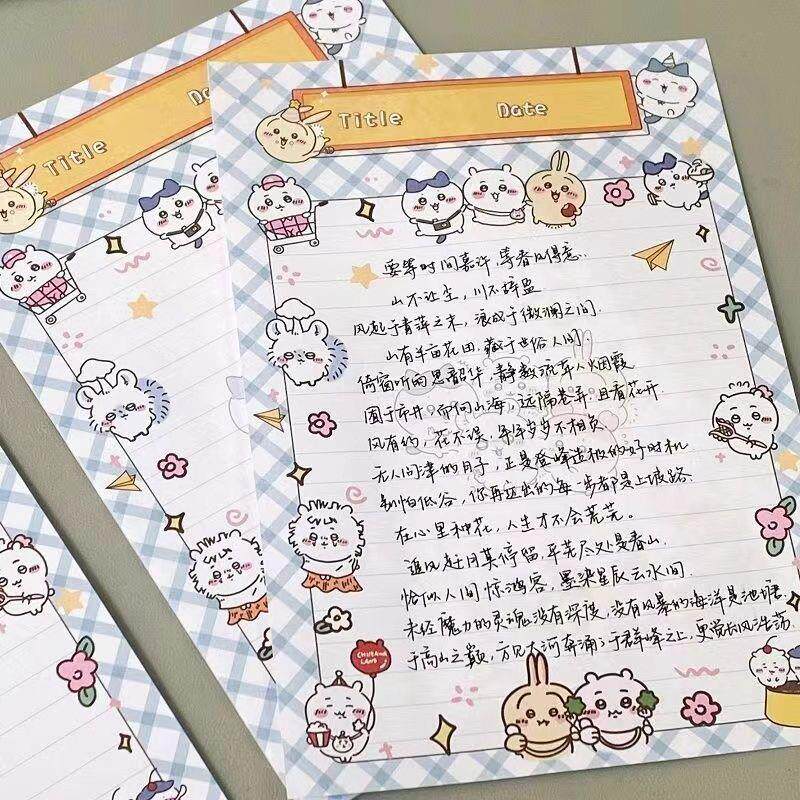 Title Date
Title Date
要等时间嘉许，等春风得意.
山不让尘，川不辞盈
风起于青萍之末，浪成于微澜之间.
山有半亩花田，藏于世俗人间
倚窗听雨思韶华，静数流年人烟霞
囿于市井，而向山海，远隔巷弄，且看花开
风有约，花不误，年年岁岁不相负
无人问津的日子，正是登峰造极的好时机
别怕低谷，你再迈出的每一步都是上坡路
在心里种花，人生才不会荒芜。
追风赶月莫停留，平芜尽处是春山
恰似人间惊鸿客，墨染星辰云水间
未经魔力的灵魂没有深度，没有风暴的海洋是池塘.
于高山之巅，方见大河奔涌；于群峰之上，更觉长风浩荡
CHIIKAWA LAND